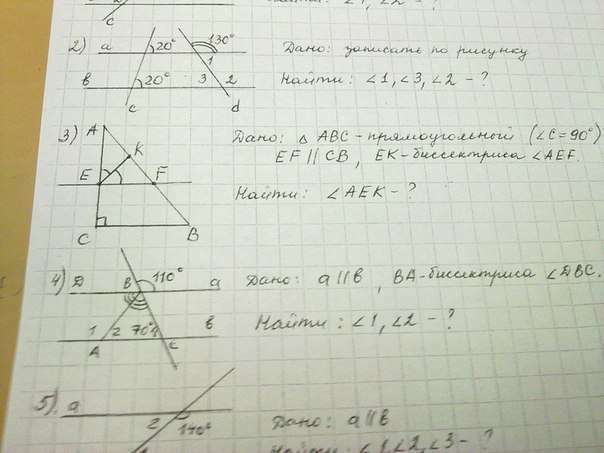 ∠1, ∠2 - ?
c
2) a 20° 130° Дано: записать по рисунку
1
в 20° 3 2 Найти: ∠1, ∠3, ∠2 - ?
c d
3) A Дано: △ ABC - прямоугольный (∠C=90°)
K EF || CB, EK - биссектриса ∠AEF.
E F Найти: ∠AEK - ?
C B
4) D B 110° a Дано: a || в, BA - биссектриса ∠DBC.
1 2 70° в Найти: ∠1, ∠2 - ?
A C
5) a
2 140° Дано: a || в
1 Найти: ∠1, ∠2, ∠3 - ?